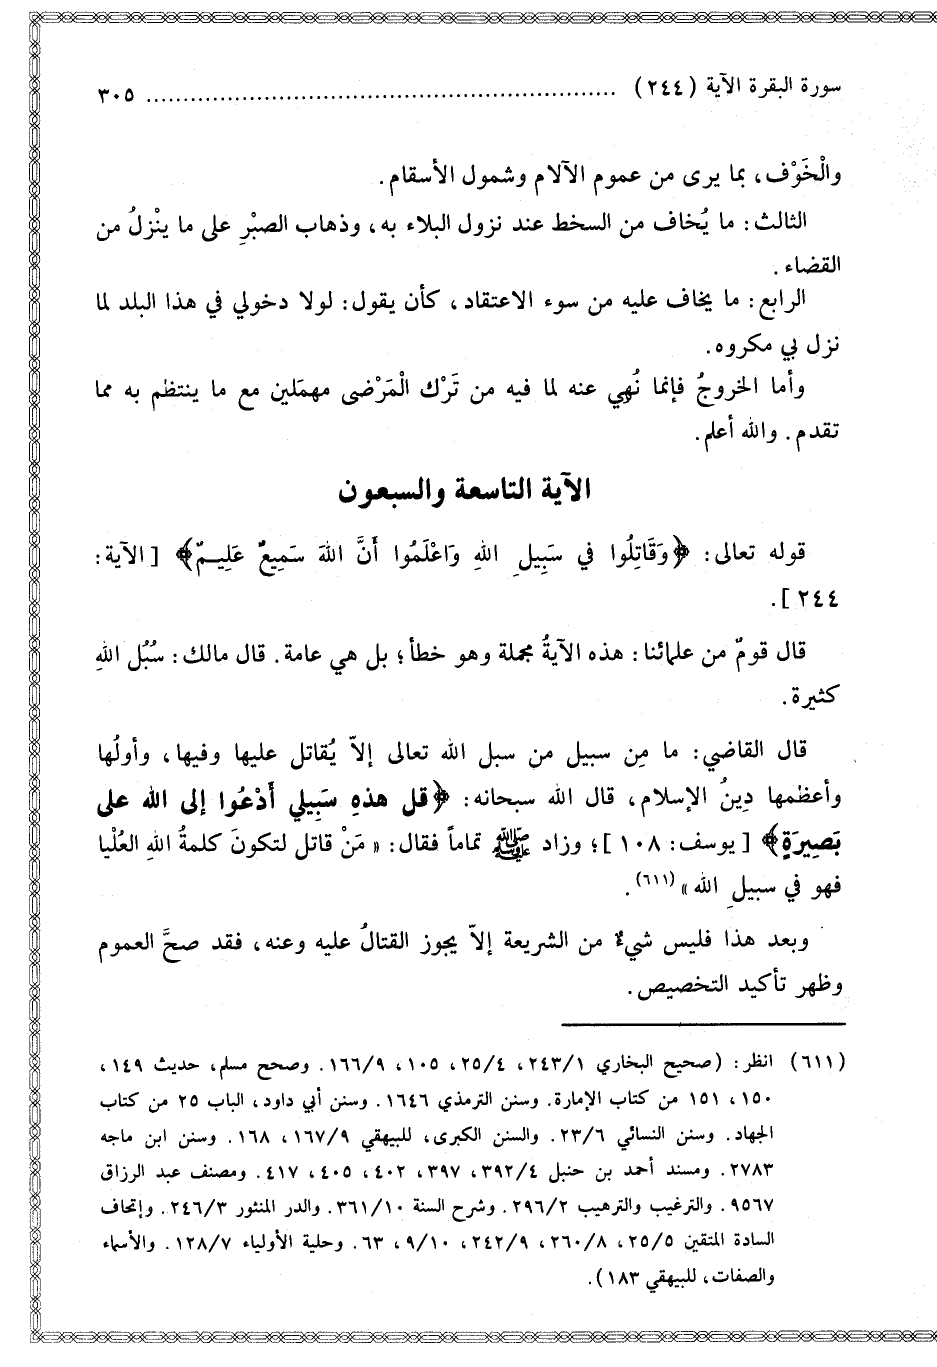 سورة البقرة الآية (٢٤٤) ................................................................ ٣٠٥
والْخَوْف، بما يرى من عموم الآلام وشمول الأسقام.
الثالث: ما يُخاف من السخط عند نزول البلاء به، وذهاب الصبْرِ على ما ينْزلُ من
القضاء.
الرابع: ما يخاف عليه من سوء الاعتقاد، كأن يقول: لولا دخولي في هذا البلد لما
نزل بي مكروه.
وأما الخروجُ فإنما نُهِي عنه لما فيه من تَرْك الْمَرْضى مهمَلين مع ما ينتظم به مما
تقدم. والله أعلم.
الآية التاسعة والسبعون
قوله تعالى: ﴿وَقَاتِلُوا في سَبِيلِ اللهِ وَاعْلَمُوا أَنَّ اللهَ سَمِيعٌ عَلِيمٌ﴾ [الآية:
٢٤٤].
قال قومٌ من علمائنا: هذه الآيةُ مجملة وهو خطأ؛ بل هي عامة. قال مالك: سُبُل اللهِ
كثيرة.
قال القاضي: ما مِن سبيل من سبل الله تعالى إلاّ يُقاتل عليها وفيها، وأولُها
وأعظمها دِينُ الإسلام، قال الله سبحانه: ﴿قل هذهِ سَبِيلي أَدْعُوا إلى الله على
بَصِيرَةٍ﴾ [يوسف: ١٠٨]؛ وزاد ﷺ تماماً فقال: «مَنْ قاتل لتكونَ كلمةُ اللهِ العُلْيا
فهو في سبيلِ الله»(٦١١).
وبعد هذا فليس شيءٌ من الشريعة إلاّ يجوز القتالُ عليه وعنه، فقد صحَّ العموم
وظهر تأكيد التخصيص.
(٦١١) انظر: (صحيح البخاري ٢٤٣/١، ٢٥/٤، ١٠٥، ١٦٦/٩. وصحح مسلم، حديث ١٤٩،
١٥٠، ١٥١ من كتاب الإمارة. وسنن الترمذي ١٦٤٦. وسنن أبي داود، الباب ٢٥ من كتاب
الجهاد. وسنن النسائي ٢٣/٦. والسنن الكبرى، للبيهقي ١٦٧/٩، ١٦٨. وسنن ابن ماجه
٢٧٨٣. ومسند أحمد بن حنبل ٣٩٢/٤، ٣٩٧، ٤٠٢، ٤٠٥، ٤١٧. ومصنف عبد الرزاق
٩٥٦٧. والترغيب والترهيب ٢٩٦/٢. وشرح السنة ٣٦١/١٠. والدر المنثور ٢٤٦/٣. وإتحاف
السادة المتقين ٢٥/٥، ٢٦٠/٨، ٢٤٢/٩، ٩/١٠، ٦٣. وحلية الأولياء ١٢٨/٧. والأسماء
والصفات، للبيهقي ١٨٣).